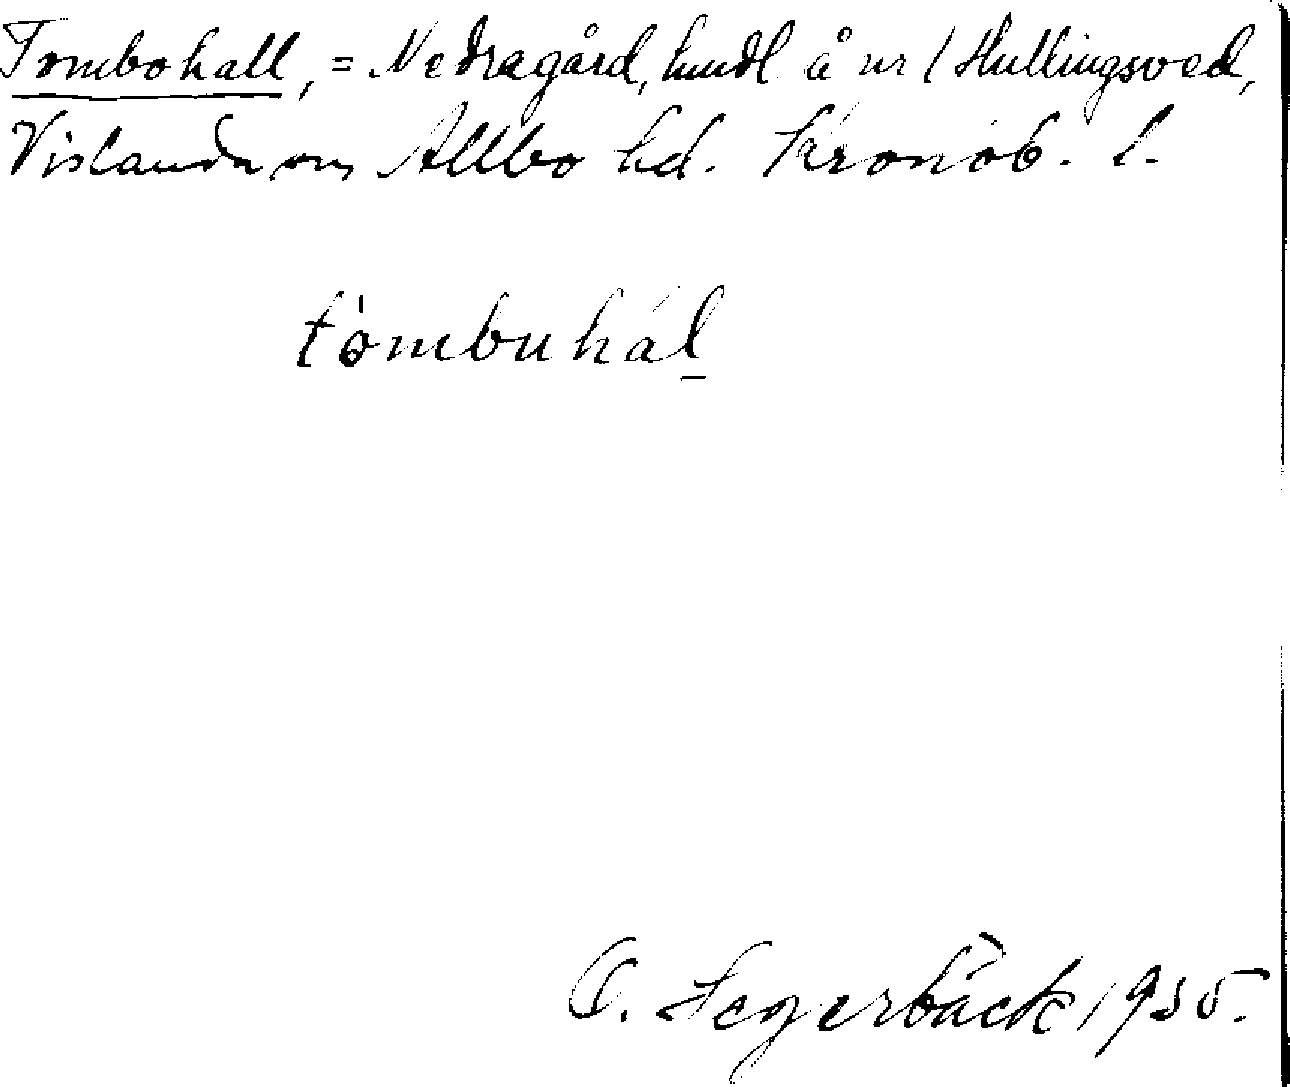 Tombohall, = Nedragård, hmdl å nr 1 Hullingsved,
Vislanda sn, Allbo hd. Kronob. l.
tòmbuhál
O. Segerbäck 1935.